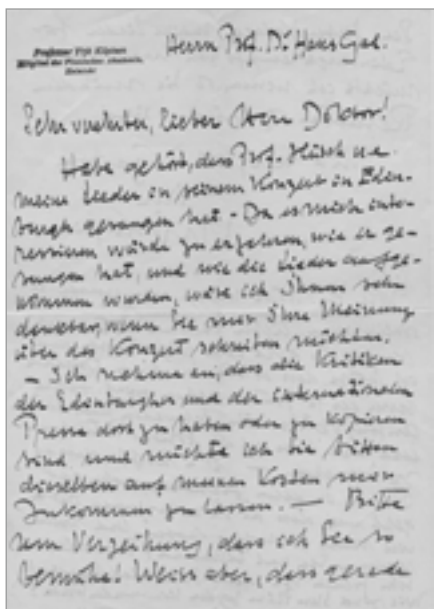 Professor Yrjö Kilpinen
Mitglied der Finnischen Akademie
Helsinki
Herrn Prof. Dr Hans Gal.
Sehr verehrter, lieber Herr Doktor!
Habe gehört, dass Prof. Hüsch u.a.
meine Lieder in seinem Konzert in Eden-
burgh gesungen hat – Da es mich inte-
ressieren würde zu erfahren, wie er ge-
sungen hat, und wie die Lieder aufge-
nommen wurden, wäre ich Ihnen sehr
dankbar, wenn Sie mir Ihre Meinung
über das Konzert schreiben möchten.
– Ich nehme an, dass die Kritiken
der Edinburgher und der internationalen
Presse dort zu haben oder zu kopieren
sind und möchte ich Sie bitten
dieselben auf meinen Kosten mir
zukommen zu lassen. — Bitte
um Verzeihung, dass ich Sie so
bemühe! Weiss aber, dass gerade